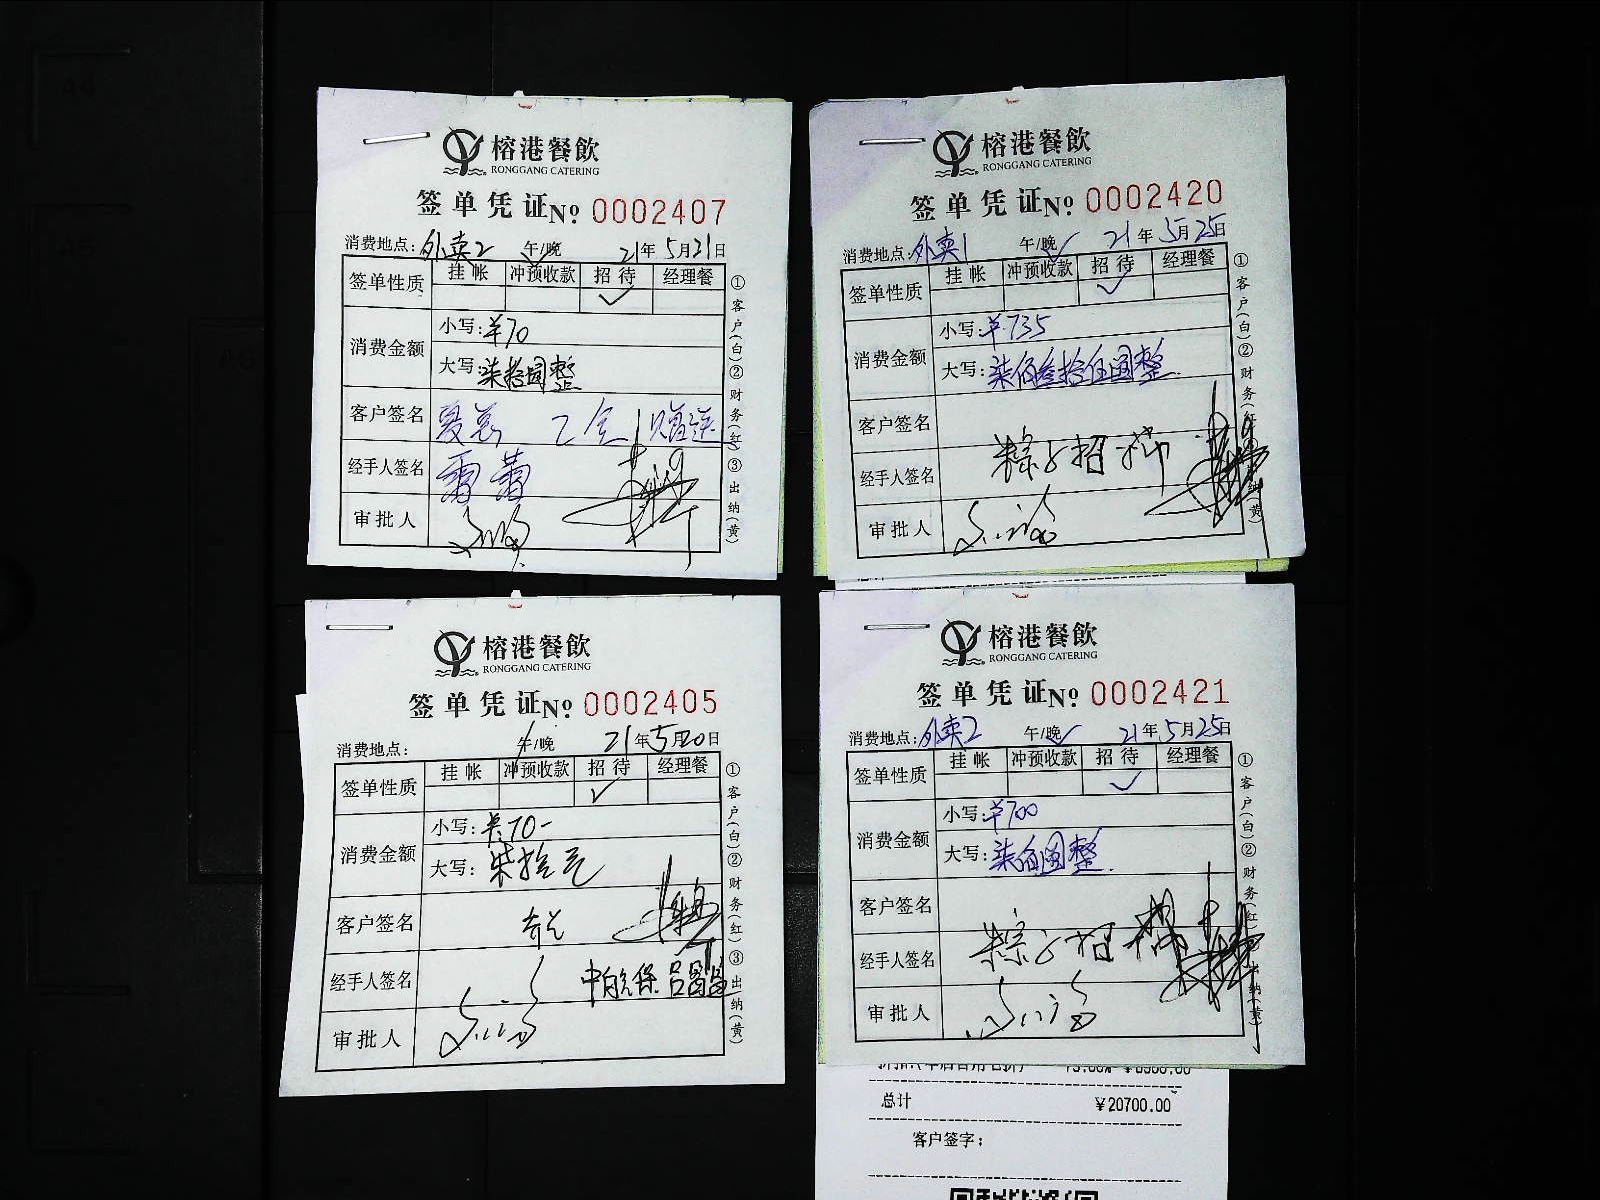 榕港餐飲
RONGGANG CATERING
签单凭证No 0002407
消费地点: 外卖2 午/晚 21年5月21日
签单性质 挂帐 冲预收款 招待 经理餐
消费金额 小写: ¥70
大写: 柒拾圆整
客户签名 赠送
经手人签名
审批人
①客户(白)②财务(红)③出纳(黄)
榕港餐飲
RONGGANG CATERING
签单凭证No 0002420
消费地点: 外卖1 午/晚 21年5月25日
签单性质 挂帐 冲预收款 招待 经理餐
消费金额 小写: ¥735
大写: 柒佰叁拾伍圆整
客户签名
经手人签名 粽子招
审批人
①客户(白)②财务(红) 纳(黄)
榕港餐飲
RONGGANG CATERING
签单凭证No 0002405
消费地点: 午/晚 21年5月20日
签单性质 挂帐 冲预收款 招待 经理餐
消费金额 小写: ¥70-
大写: 柒拾元
客户签名
经手人签名 中航保
审批人
①客户(白)②财务(红)③出纳(黄)
榕港餐飲
RONGGANG CATERING
签单凭证No 0002421
消费地点: 外卖2 午/晚 21年5月25日
签单性质 挂帐 冲预收款 招待 经理餐
消费金额 小写: ¥700
大写: 柒佰圆整
客户签名
经手人签名 粽子招
审批人
①客户(白)②财务(红) 出纳(黄)
总计 ¥20700.00
客户签字: